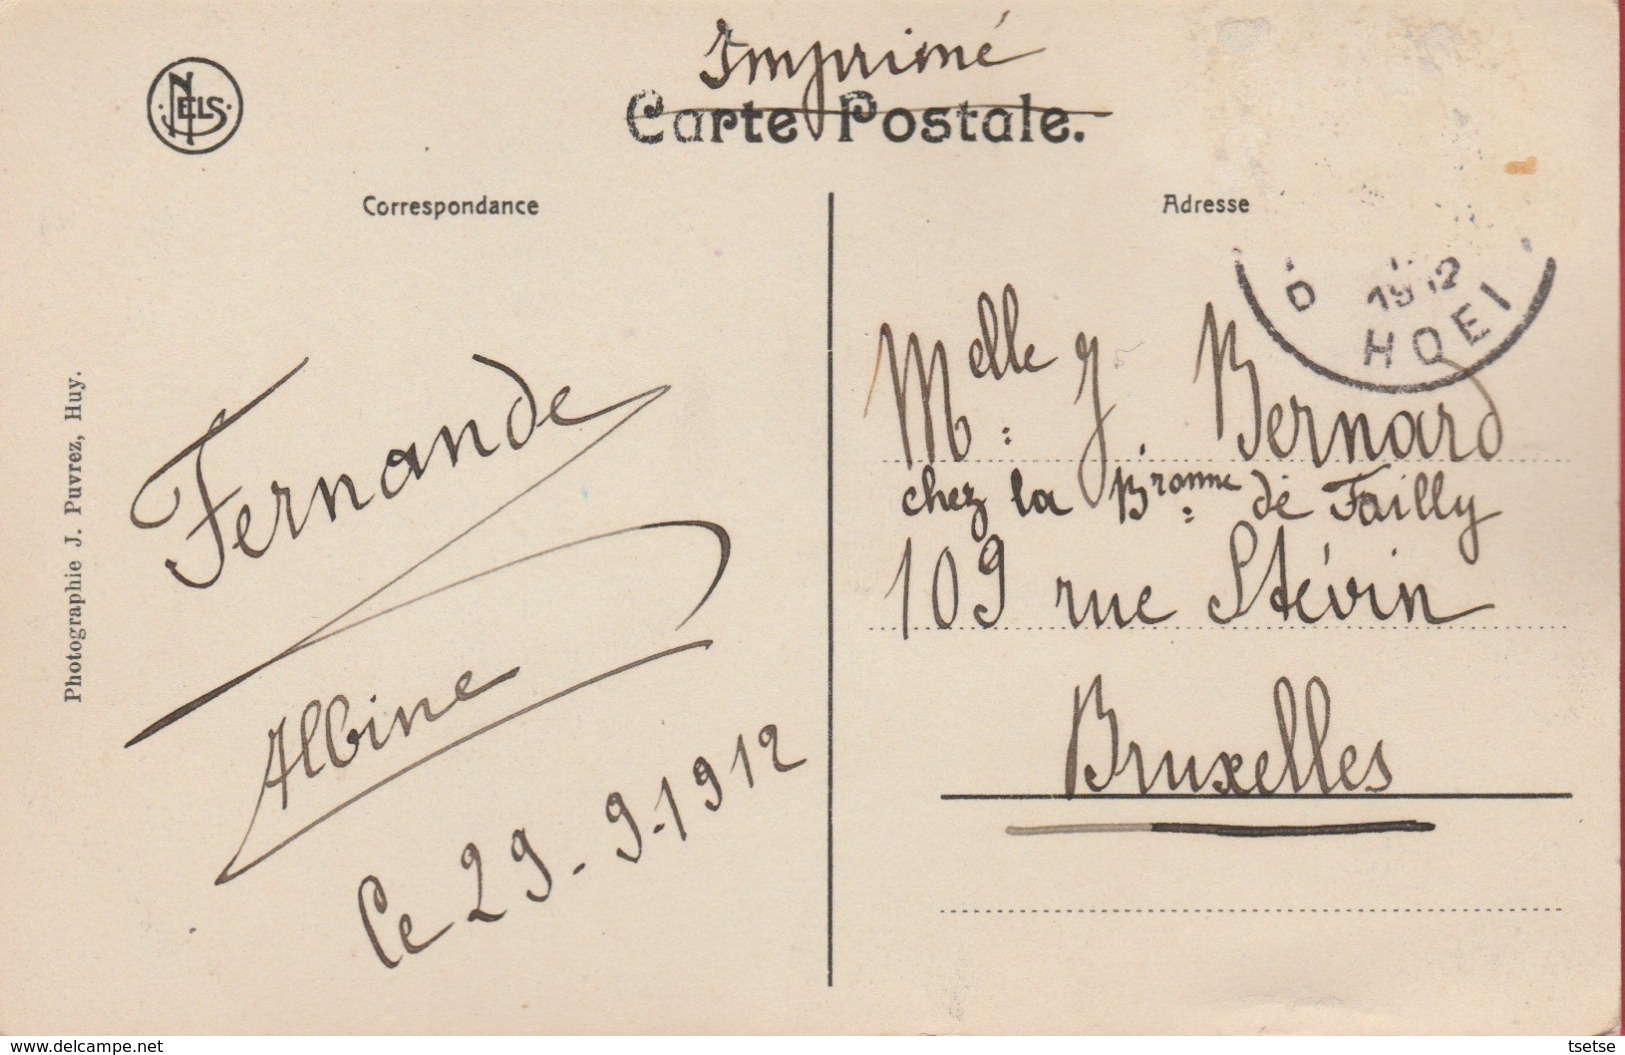 Imprimé
Carte Postale.
NELS
Correspondance
Adresse
Photographie J. Puvrez, Huy.
1912
HOEI
Fernande
Albine
Ce 29-9-1912
Melle J. Bernard
chez la Bronne de Failly
109 rue Stévin
Bruxelles
www.delcampe.net
tsetse